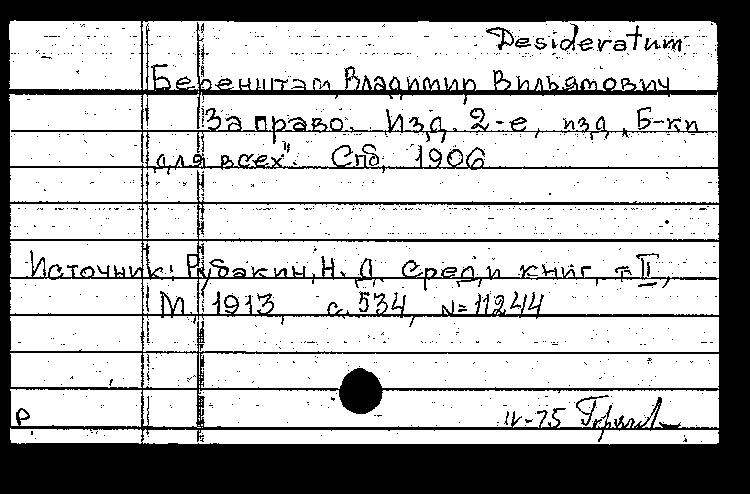 Desideratum
Беренштам, Владимир Вильямович
За право. Изд. 2-е, изд. „Б-ки
для всех". Спб, 1906
Источник: Рубакин, Н. А. Среди книг, т. II,
М, 1913, с. 534, N=11244
Р
IV-75